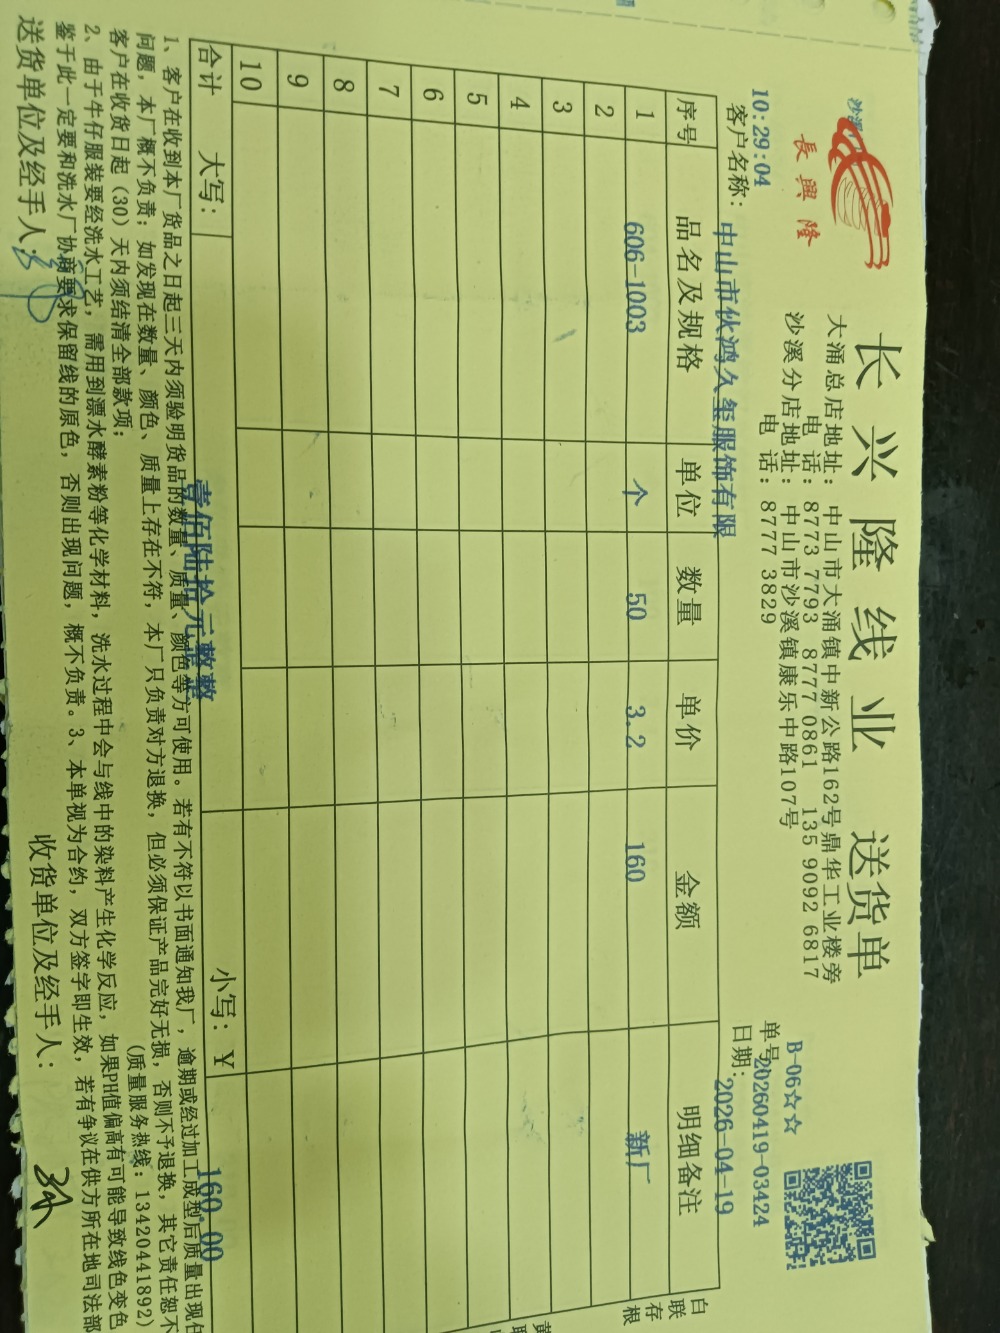 長興隆
长兴隆线业 送货单
大涌总店地址：中山市大涌镇中新公路162号鼎华工业楼旁
电 话：8773 7793 8777 0861 135 9092 6817
沙溪分店地址：中山市沙溪镇康乐中路107号
电 话：8777 3829
B-06☆☆
单号：20260419-03424
10:29:04
客户名称：中山市伙鸿久玺服饰有限
日期：2026-04-19
序号 品名及规格 单位 数量 单价 金额 明细备注
1 606-1003 个 50 3.2 160 新厂
2
3
4
5
6
7
8
9
10
合计 大写：壹佰陆拾元整 小写：￥ 160.00
白联存根
1、客户在收到本厂货品之日起三天内须验明货品的数量、质量、颜色等方可使用。若有不符以书面通知我厂，逾期或经过加工成型后质量出现任
问题，本厂概不负责；如发现在数量、颜色、质量上存在不符，本厂只负责对方退换，但必须保证产品完好无损，否则不予退换，其它责任恕不
客户在收货日起（30）天内须结清全部款项；（质量服务热线：13420441892）
2、由于牛仔服装要经洗水工艺，需用到漂水酵素粉等化学材料，洗水过程中会与线中的染料产生化学反应，如果PH值偏高有可能导致线色变色
鉴于此一定要和洗水厂协商要求保留线的原色，否则出现问题，概不负责。3、本单视为合约，双方签字即生效，若有争议在供方所在地司法部
送货单位及经手人： 收货单位及经手人：